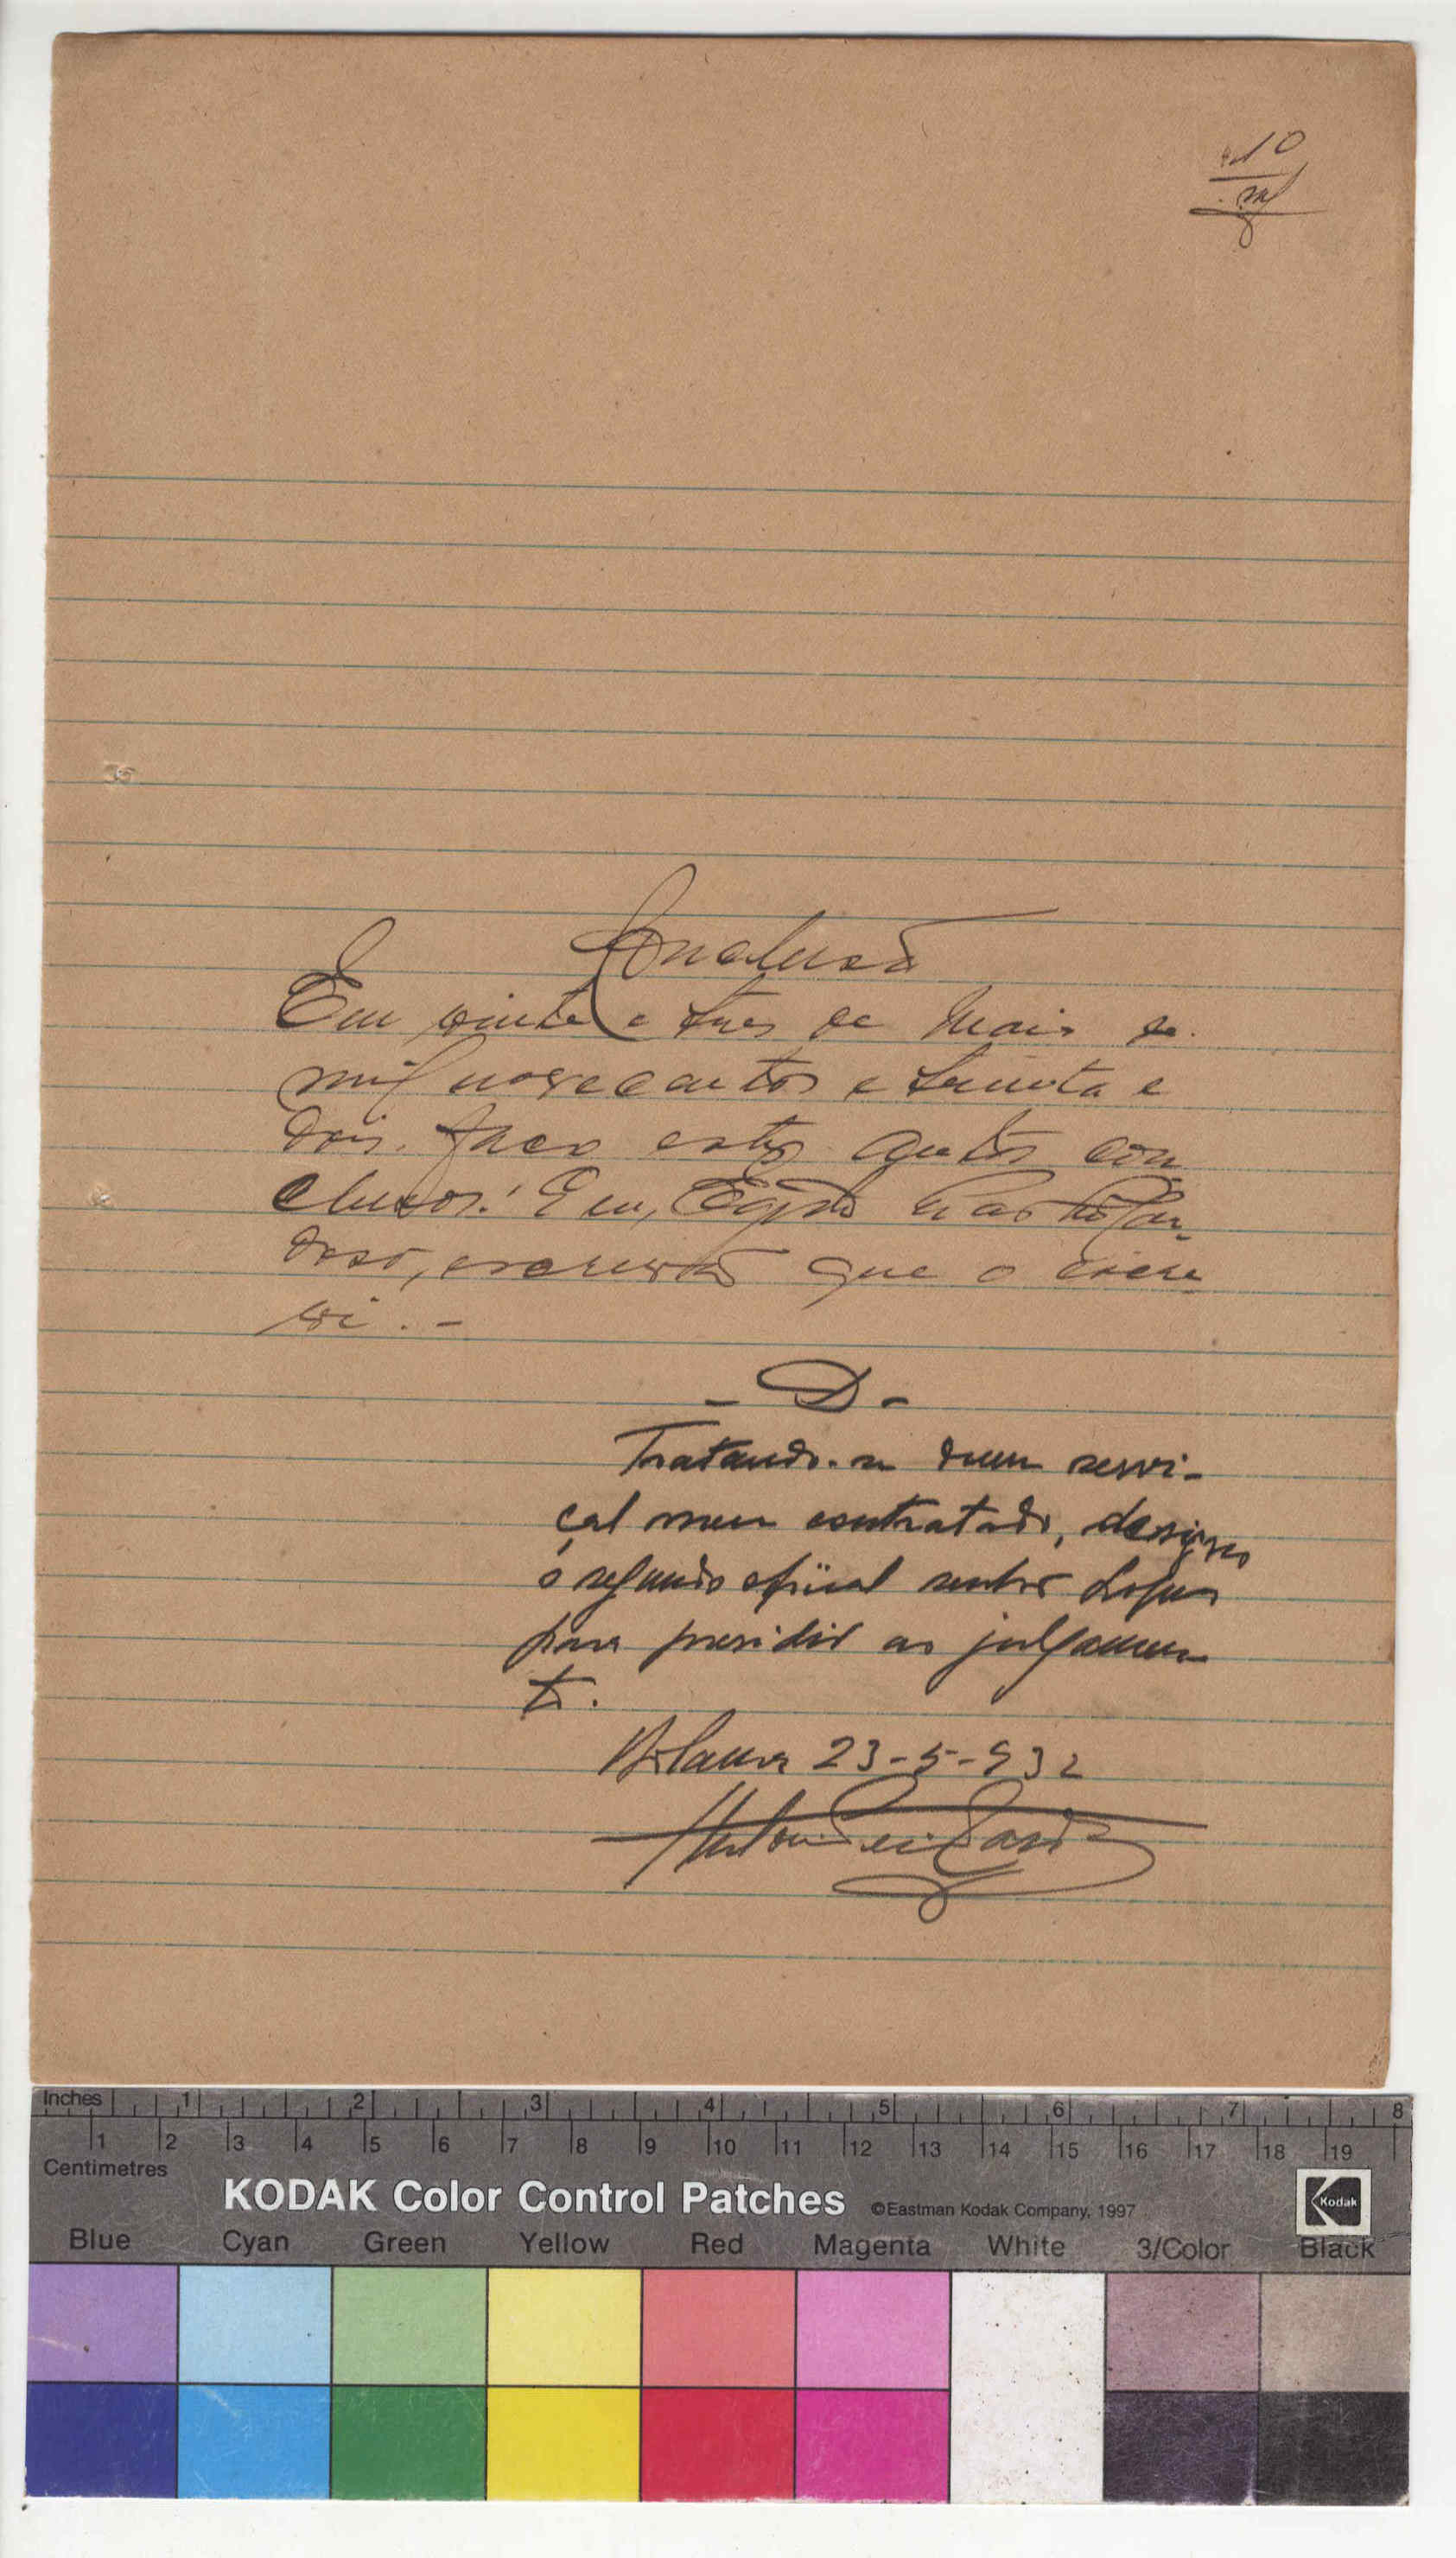 10
Conclusão
Em vinte e tres de Maio de
mil novecentos e trinta e
dois. faço estes autos con
clusos. Eu, Egidio
doso, escrivão que o escre
vi. -
- D -
Tratando-se dum servi-
çal meu contratado, designo
o segundo oficial senhor Lopes
para presidir ao julgamen
to.
Bolama 23-5-932
Inches 1 2 3 4 5 6 7 8
1 2 3 4 5 6 7 8 9 10 11 12 13 14 15 16 17 18 19
Centimetres
KODAK Color Control Patches ©Eastman Kodak Company, 1997 Kodak
Blue Cyan Green Yellow Red Magenta White 3/Color Black